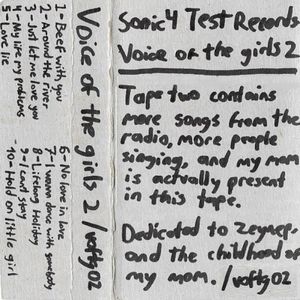 1-Beef with you
2-Around the river
3-Just let me love you
4-My life my problems
5-Love lie
6-No love in love
7-I wanna dance with somebody
8-Lifelong Holiday
9-I cand stay
10-Hold on little girl
Voice of the girls 2/voftg02
Sonic4 Test Records
Voice of the girls 2
Tape two contains
more songs from the
radio, more people
singing, and my mom
is actually present
in this tape.
Dedicated to Zeynep,
and the childhood of
my mom./voftg02